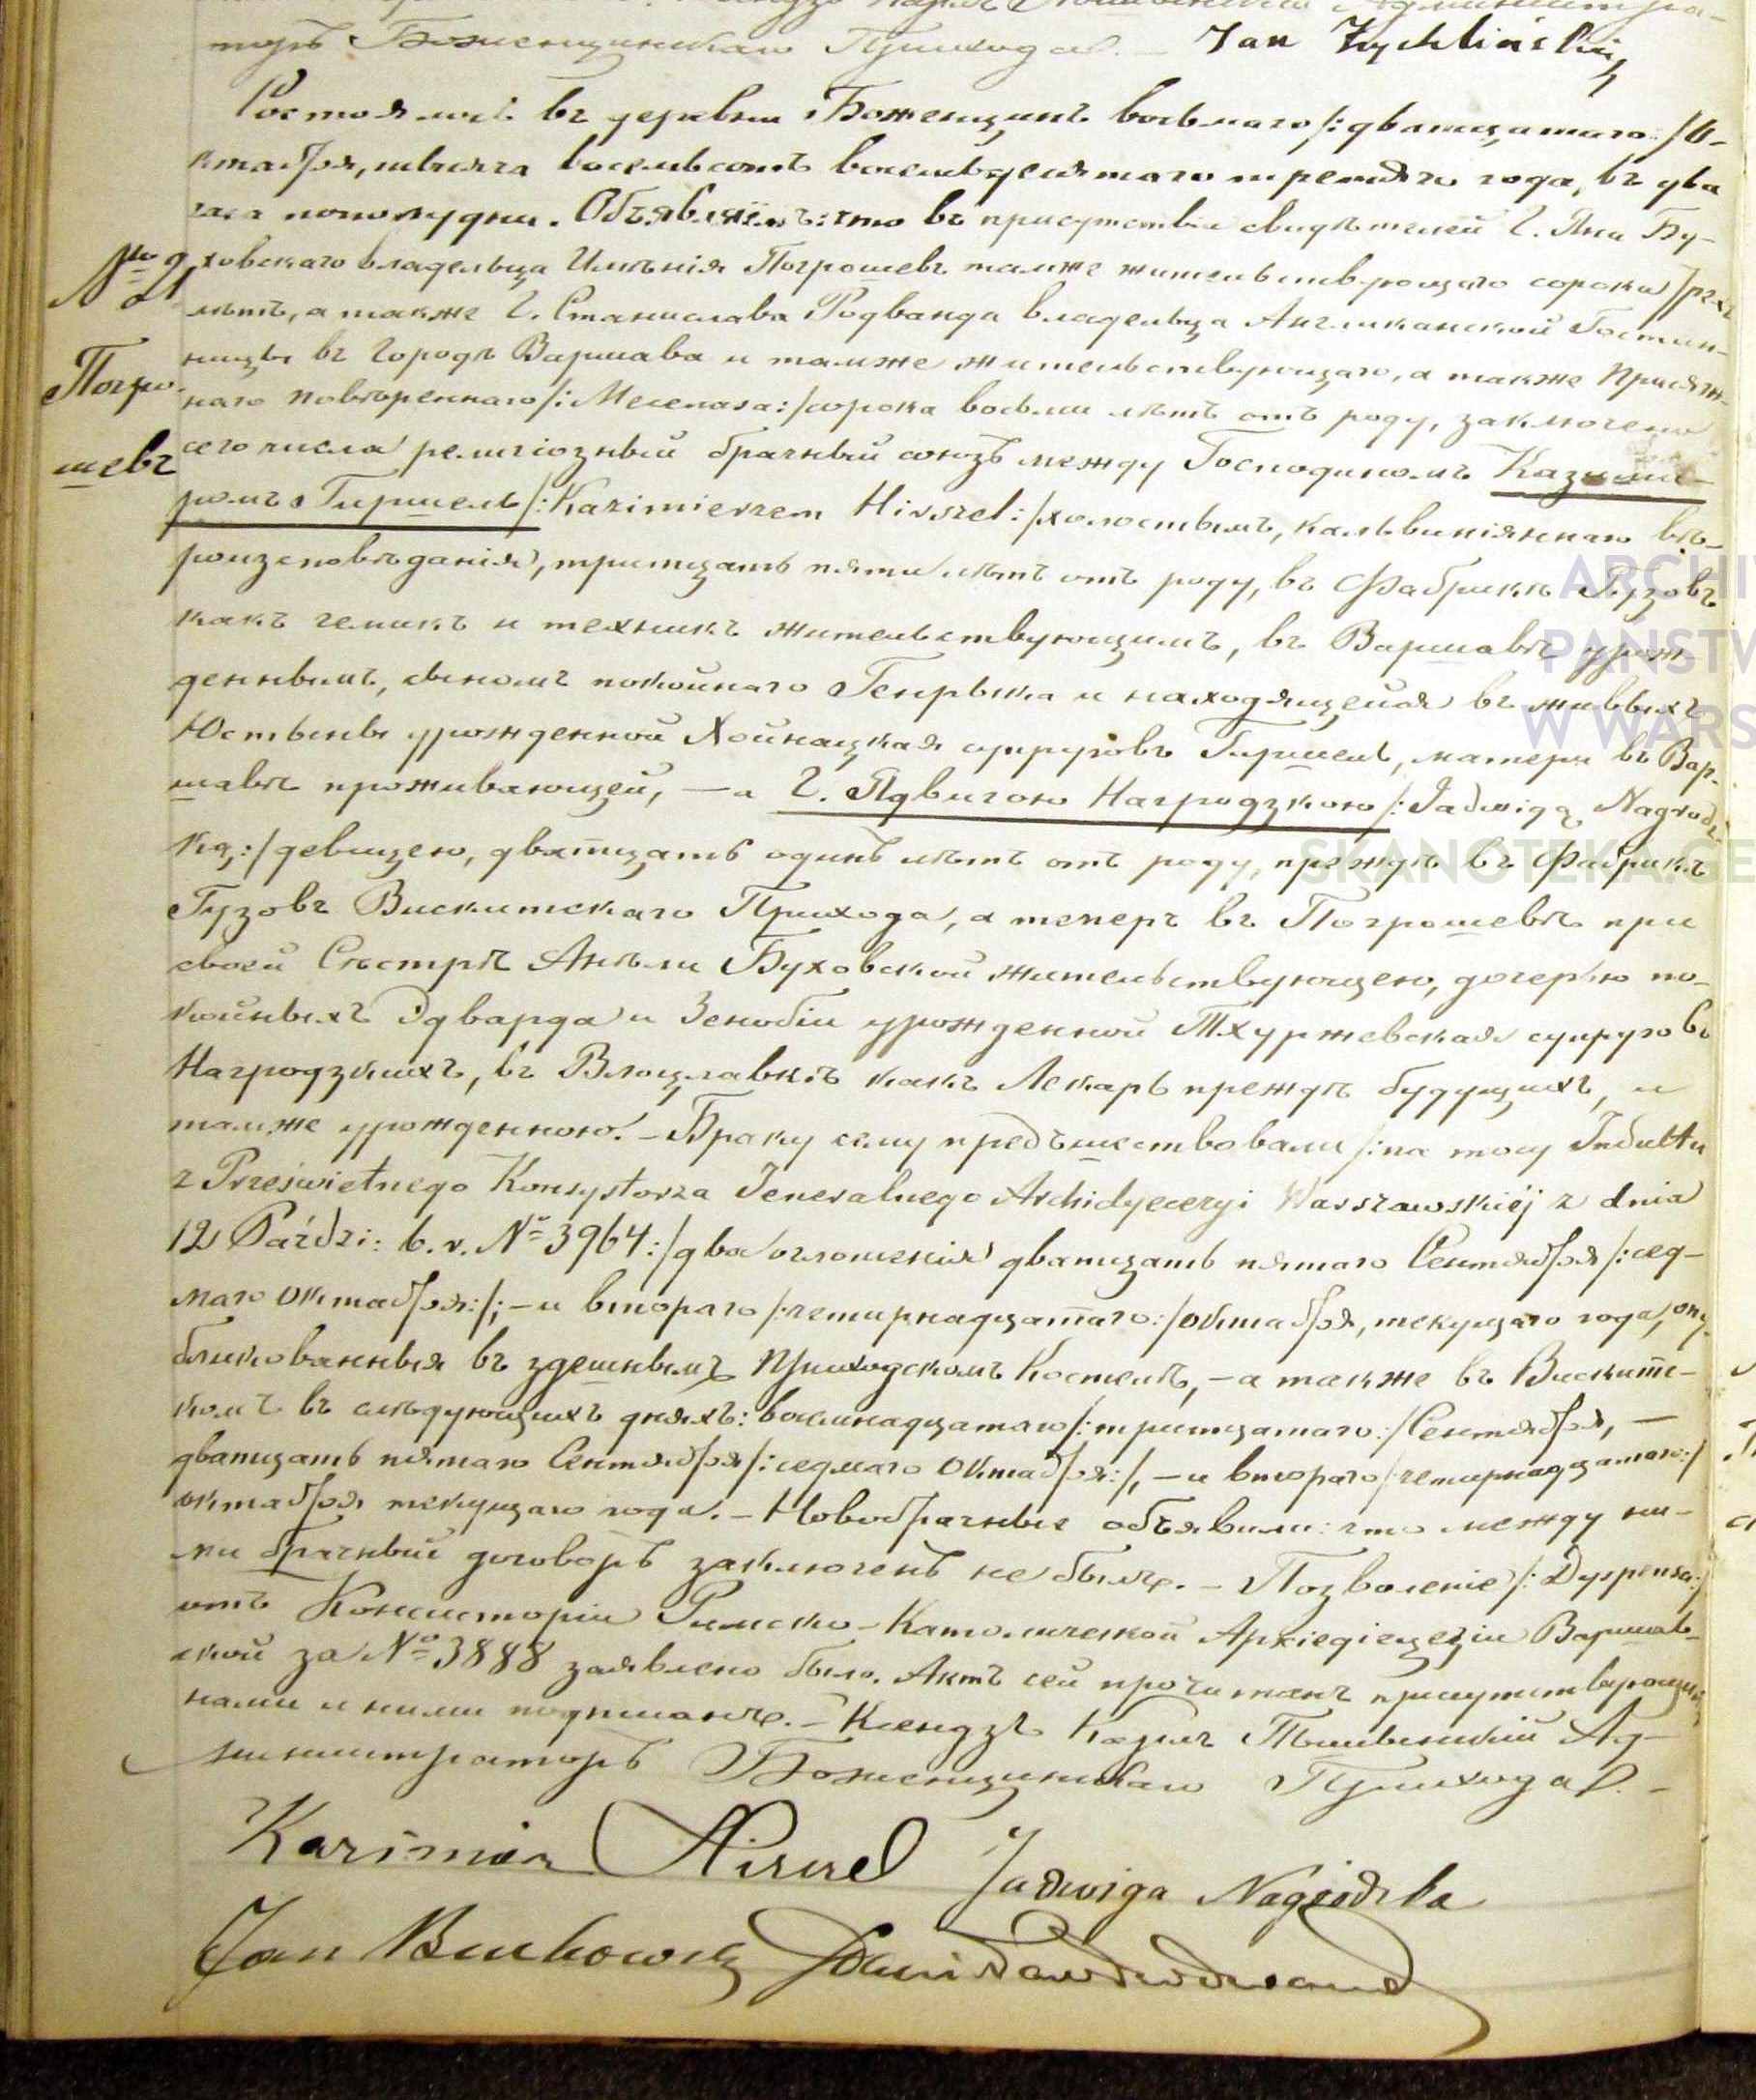 торъ Боженцинскаго Прихода. — Jan Żychliński
Состоялось въ деревни Боженцинъ восьмаго /: дватцатаго :/ О-
ктабря, тысяча восемьсотъ восемьдесятаго третяго года, въ два
часа пополудни. Объявляемъ: что въ присутствіи свидѣтелей Г. Яна Бу-
№ 21 ховскаго владельца Имѣнія Погрошевъ тамже жительствующаго сорока трехъ
лѣтъ, а также Г. Станислава Родванда владельца Англиканской Гостин-
Погро- ницы въ Городѣ Варшава и тамже жительствующаго, а также Присяж-
наго повѣреннаго /: Месепаза :/ сорока восьми лѣтъ отъ роду, заключено
шевъ сего числа религіозный брачный союзъ между Господиномъ Казими-
ромъ Гиршель /: Kazimierzem Hirszel :/ холостымъ, кальвиніянскаго вѣ-
роисповѣданія, тритцать пяти лѣтъ отъ роду, въ Фабрикѣ Гузовъ
какъ хемикъ и техникъ жительствующимъ, въ Варшавѣ урож-
деннымъ, сыномъ покойнаго Генрыка и находящейся въ живыхъ
Юстыны урожденной Хойнацкая супруговъ Гиршель, матери въ Вар-
шавѣ проживающей, — а Г. Ядвигою Нагродзкою /: Jadwigą Nagrodz-
ką :/ девицею, дватцать одинъ лѣтъ отъ роду, преждѣ въ Фабрикѣ
Гузовъ Вискитскаго Прихода, а теперъ въ Погрошевѣ при
своей Сѣстрѣ Анѣли Буховской жительствующею, дочерью по-
койныхъ Эдварда и Зенобіи урожденной Тхуржевская супруговъ
Нагродзкихъ, въ Влоцлавкѣ какъ Лекарь преждѣ будущихъ, и
тамже урожденною. — Браку сему предъшествовали /: на мочу Indultu
z Prześwietnego Konsystorza Jeneralnego Archidyecezyi Warszawskiéj z dnia
12 Paździ: b. r. № 3964 :/ два оглошенія дватцать пятаго Сентября /: сед-
маго Октабря :/; — и втораго /: четырнадцатаго :/ Октабря, текущаго года, опу-
бликованныя въ здешнымъ Приходскомъ Костелѣ, — а также въ Вискитс-
комъ въ слѣдующихъ дняхъ: восемнадцатаго /: тритцатаго :/ Сентября, —
дватцать пятаго Сентября /: седмаго Октабря :/, — и втораго /: четырнадцатаго :/
октабря текущаго года. — Новобрачные объявили: что между ни-
ми брачный договоръ заключенъ не былъ. — Позволеніе /: Dyspensa :/
отъ Консисторіи Римско-Католической Архіедіецезіи Варшав-
ской за № 3888 заявлено было. Актъ сей прочитанъ присутствующимъ
нами и ними подписанъ. — Ксендзъ Кароль Ад-
министраторъ Боженцинскаго Прихода. —
Kazimierz Hirszel Jadwiga Nagrodzka
Jan Buchowski Stanisław Rodwand